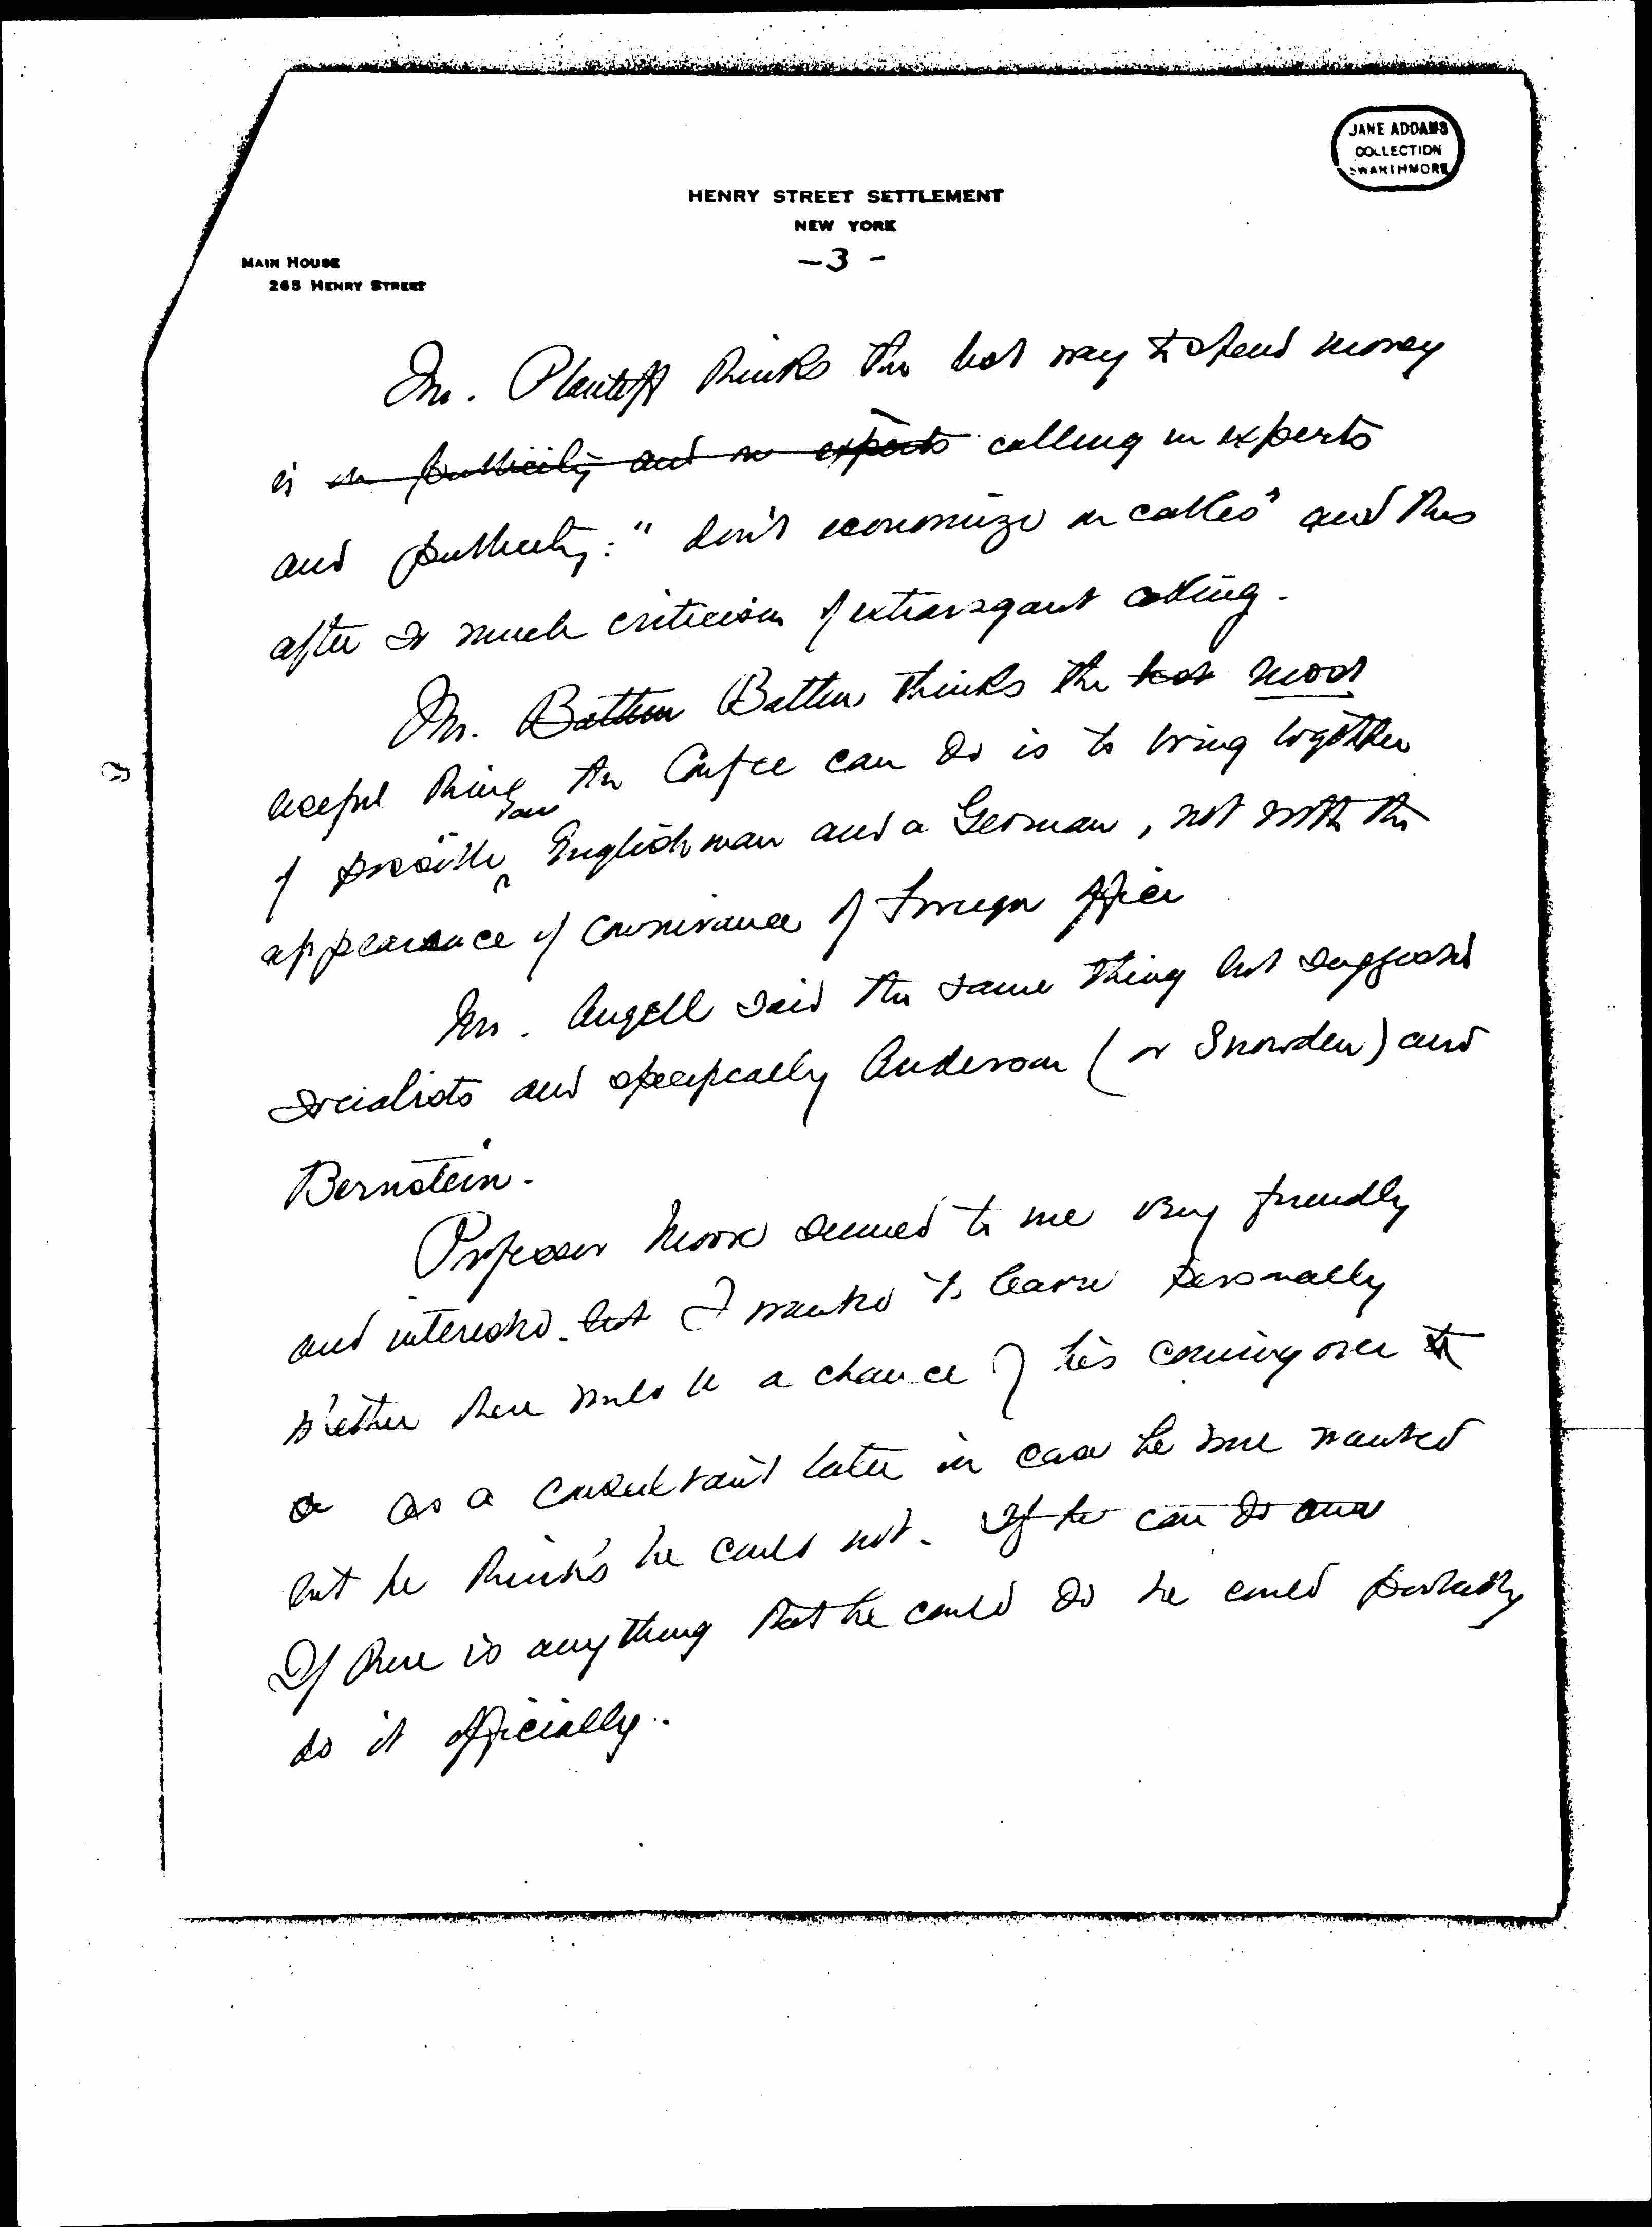 JANE ADDAMS
COLLECTION
SWARTHMORE
HENRY STREET SETTLEMENT
NEW YORK
-3-
MAIN HOUSE
265 HENRY STREET
Mr. Plantiff thinks the best way to spend money
is on publicity and on experts calling in experts
and publicity: "don't economize on cables" and this
after so much criticism of extravagant cabling.
Mr. Batten Batten thinks the best most
useful thing the Confce can do is to bring together
if possible an Englishman and a German, not with the
appearance of connivance of Foreign Office
Mr. Angell said the same thing but suggested
socialists and specifically Anderson (or Snowden) and
Bernstein.
Professor Moore seemed to me very friendly
and interested but I wanted to learn personally
whether there would be a chance of his coming over
as a consultant later in case he were wanted
but he thinks he could not. If he can do
If there is anything that he could do he could probably
do it officially.